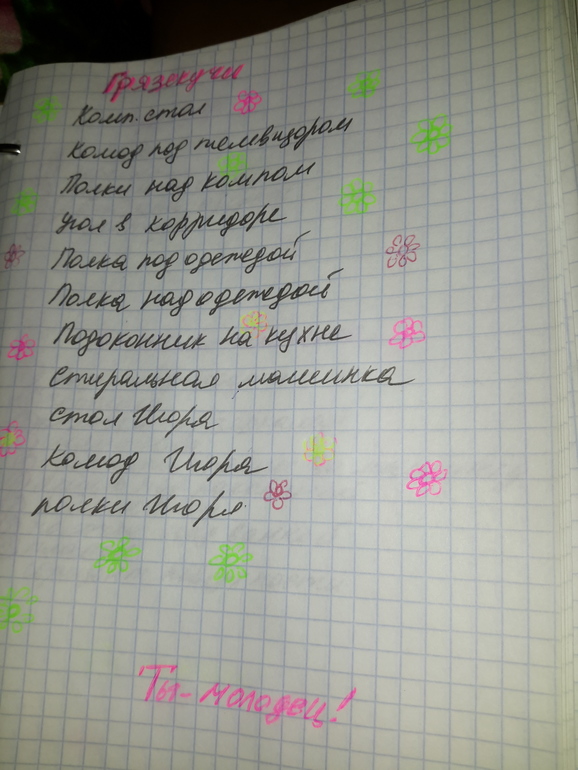 Грязекучи
Комп. стол
Комод под телевизором
Полки над компом
угол в корридоре
Полка под одеждой
Полка над одеждой
Подоконник на кухне
стиральная машинка
стол Игоря
комод Игоря
полки Игоря
Ты - молодец!